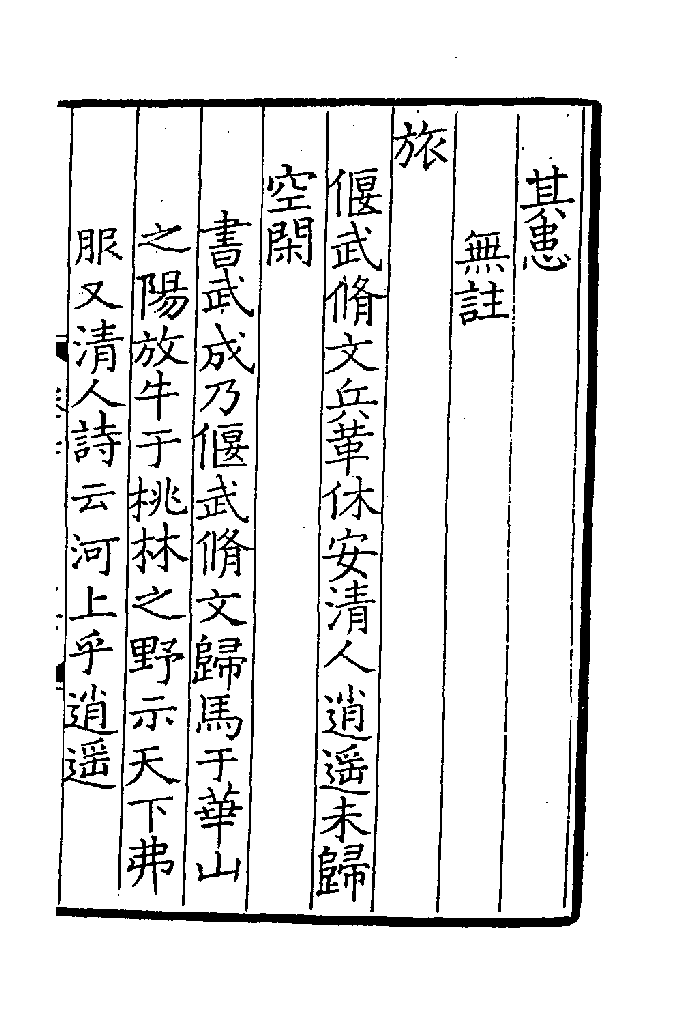 其患
無註
旅
偃武脩文兵革休安清人逍遥未歸
空閑
書武成乃偃武脩文歸馬于華山
之陽放牛于桃林之野示天下弗
服又清人詩云河上乎逍遥